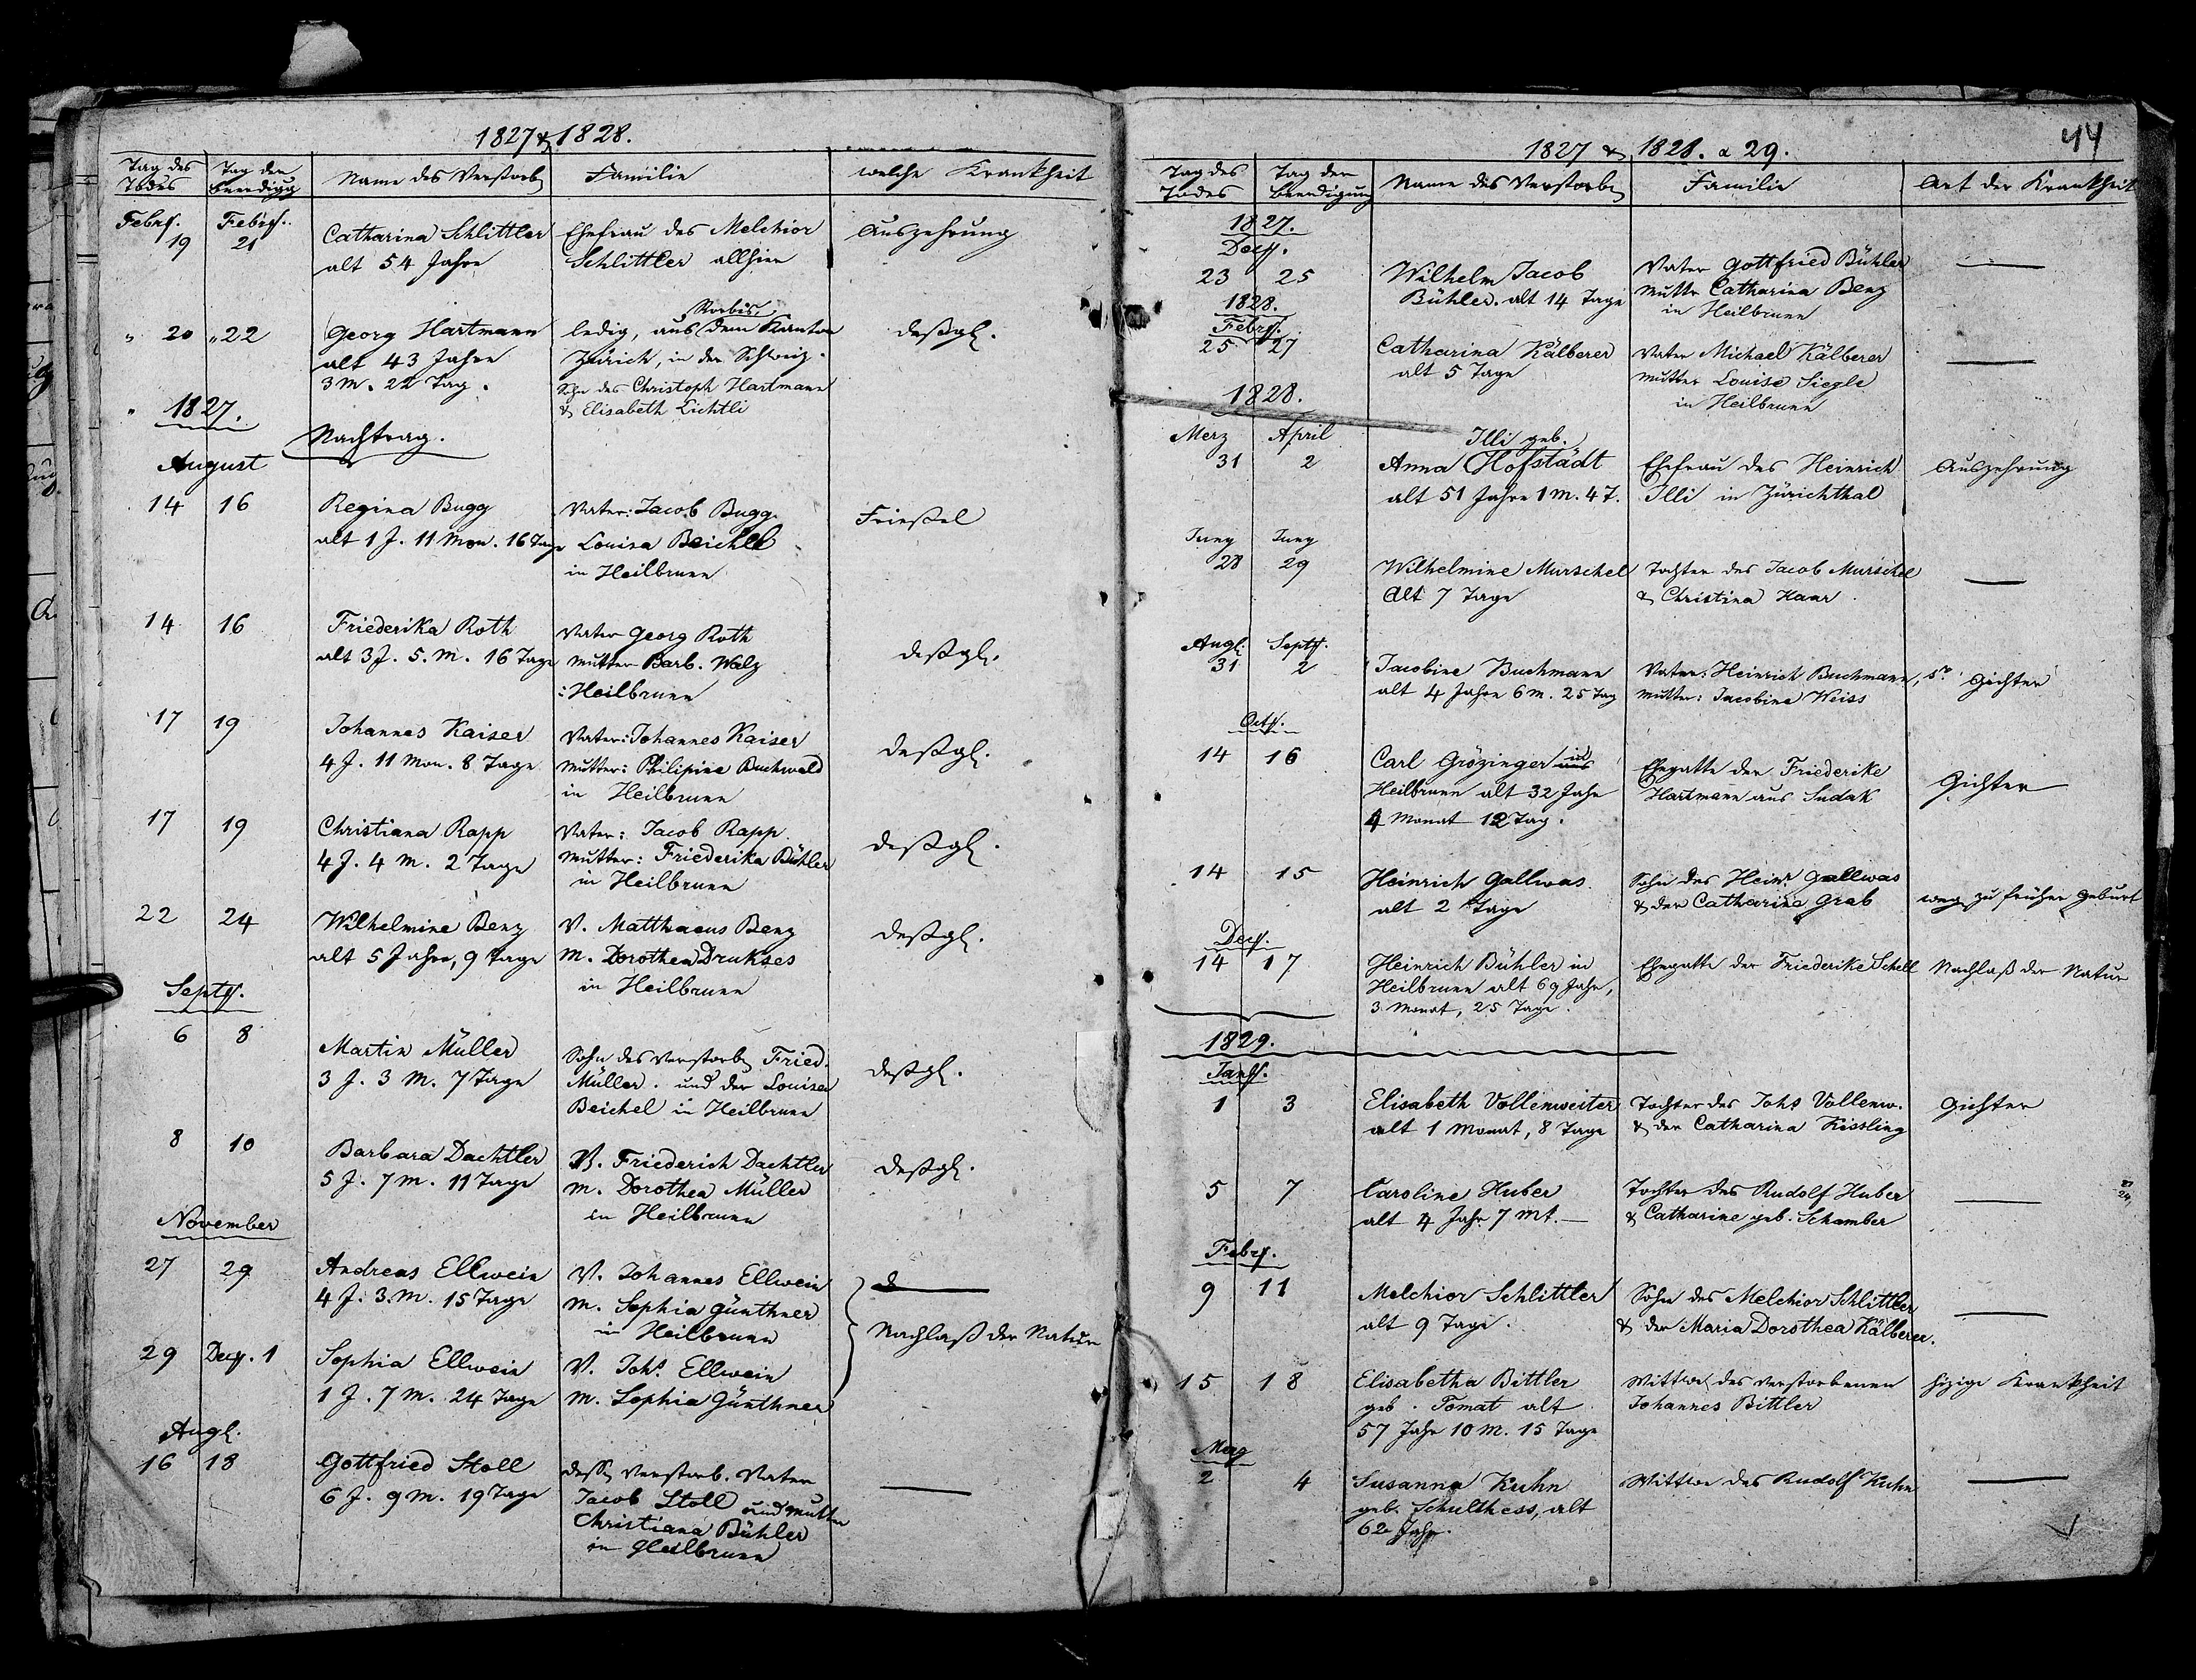 1827 & 1828.
Tag des Todes | Tag der Beerdigg | Name des Verstorb | Familie | welche Krankheit
Febry. 19 | Febry. 21 | Catharina Schlittler | Ehefrau des Melchior | Auszehrung
alt 54 Jahre | Schlittler allhier
" 20 | " 22 | Georg Hartmann | ledig, aus dem Kanton | deßgl.
alt 43 Jahre | Zürich, in der Schweiz.
3 M. 22 Tag. | Sohn des Christoph Hartmann
& Elisabeth Lichtli
" 1827.
Nachtrag.
August
14 | 16 | Regina Bugg | Vater: Jacob Bugg. | Frießel
alt 1 J. 11 Mon. 16 Tage | Louisa Beichel
in Heilbrunn
14 | 16 | Friederika Roth | Vater Georg Roth | deßgl.
alt 3 J. 5. M. 16 Tage | Mutter Barb. Walz
: Heilbrunn
17 | 19 | Johannes Kaiser | Vater: Johannes Kaiser | deßgl.
4 J. 11 Mon. 8 Tage | Mutter: Philipine Buchwald
in Heilbrunn
17 | 19 | Christiana Rapp | Vater: Jacob Rapp | deßgl.
4 J. 4 M. 2 Tage | Mutter: Friederika Bühler
in Heilbrunn
22 | 24 | Wilhelmine Benz | V. Matthaeus Benz | deßgl.
alt 5 Jahre, 9 Tage | M. Dorothea Drukses
in Heilbrunn
Septy.
6 | 8 | Martin Müller | Sohn des verstorb Fried. | deßgl.
3 J. 3 M. 7 Tage | Müller. und der Louisa
Beichel in Heilbrunn
8 | 10 | Barbara Dachtler | V. Friederich Dachtler | deßgl.
5 J. 7 M. 11 Tage | M. Dorothea Müller
in Heilbrunn
November
27 | 29 | Andreas Ellwein | V. Johannes Ellwein
4 J. 3. M. 15 Tage | M. Sophia Günthner
in Heilbrunn | Nachlaß der Natur
29 | Decy. 1 | Sophia Ellwein | V. Johs Ellwein
1 J. 7 M. 24 Tage | M. Sophia Günthner
Augl.
16 | 18 | Gottfried Stoll | deßen verstorb. Vater | —
6 J. 9 M. 19 Tage | Jacob Stoll und Mutter
Christiana Bühler
in Heilbrunn
44
1827 & 1828. & 29.
Tag des Todes | Tag der Beerdigung | Name des Verstorben | Familie | Art der Krankheit
1827.
Decy.
23 | 25 | Wilhelm Jacob | Vater Gottfried Bühler | —
Bühler. alt 14 Tage | Mutter Catharina Benz
in Heilbrunn
1828.
Febry.
25 | 27 | Catharina Kälberer | Vater Michael Kälberer | —
alt 5 Tage | Mutter Louise Siegle
in Heilbrunn
1828.
Merz | April | Illi geb.
31 | 2 | Anna Hofstädt | Ehefrau des Heinrich | Auszehrung
alt 51 Jahre 1 M. 4 T. | Illi in Zürichthal
Juny | Juny
28 | 29 | Wilhelmine Murschel | Tochter des Jacob Murschel | —
alt 7 Tage | & Christina Haar.
Augl. | Septy.
31 | 2 | Jacobine Buchmann | Vater: Heinrich Buchmann, | Gichter
alt 4 Jahre 6 M. 25 Tag | Mutter: Jacobina Weiss
Octy.
14 | 16 | Carl Grözinger in | Ehegatte der Friederike | Gichter
Heilbrunn alt 32 Jahr | Hartmann aus Sudak
4 Monat 12 Tag.
14 | 15 | Heinrich Gallwas | Sohn des Heinr. Gallwas | weg. zu früher Geburt
alt 2 Tage | & der Catharina Grab
Decy.
14 | 17 | Heinrich Bühler in | Ehegatte der Friederike Schell | Nachlaß der Natur
Heilbrunn alt 69 Jahr,
3 Monat, 25 Tage.
1829.
Jany.
1 | 3 | Elisabeth Vollenweiter | Tochter des Johs Vollenw. | Gichter
alt 1 Monat, 8 Tage | & der Catharina Kissling
5 | 7 | Caroline Huber | Tochter des Rudolf Huber | —
alt 4 Jahr 7 Mt. — | & Catharine geb. Schamber
Febry.
9 | 11 | Melchior Schlittler | Sohn des Melchior Schlittler | —
alt 9 Tage. | & der Maria Dorothea Kälberer.
15 | 18 | Elisabetha Bittler | Wittwe des verstorbenen | hizige Krankheit
geb. Tomat alt | Johannes Bittler
57 Jahr 10 M. 15 Tage
Merz
2 | 4 | Susanna Kuhn | Wittwe des Rudolf Kuhn | —
geb. Schulthess, alt
62 Jahr.